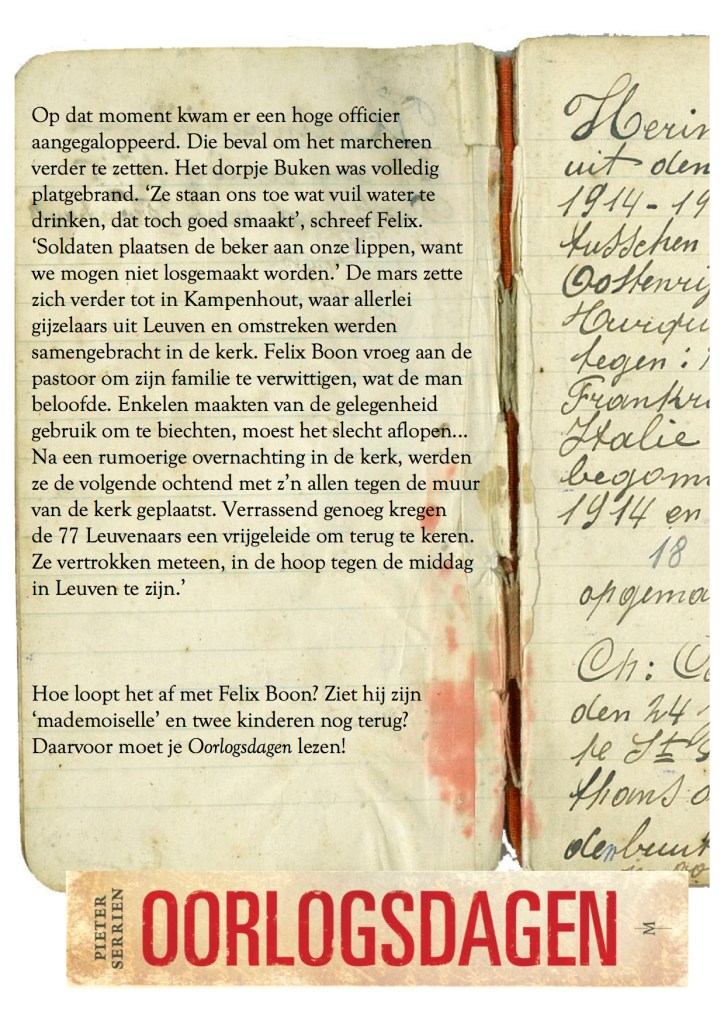 Op dat moment kwam er een hoge officier
aangegaloppeerd. Die beval om het marcheren
verder te zetten. Het dorpje Buken was volledig
platgebrand. ‘Ze staan ons toe wat vuil water te
drinken, dat toch goed smaakt’, schreef Felix.
‘Soldaten plaatsen de beker aan onze lippen, want
we mogen niet losgemaakt worden.’ De mars zette
zich verder tot in Kampenhout, waar allerlei
gijzelaars uit Leuven en omstreken werden
samengebracht in de kerk. Felix Boon vroeg aan de
pastoor om zijn familie te verwittigen, wat de man
beloofde. Enkelen maakten van de gelegenheid
gebruik om te biechten, moest het slecht aflopen...
Na een rumoerige overnachting in de kerk, werden
ze de volgende ochtend met z’n allen tegen de muur
van de kerk geplaatst. Verrassend genoeg kregen
de 77 Leuvenaars een vrijgeleide om terug te keren.
Ze vertrokken meteen, in de hoop tegen de middag
in Leuven te zijn.’
Hoe loopt het af met Felix Boon? Ziet hij zijn
‘mademoiselle’ en twee kinderen nog terug?
Daarvoor moet je Oorlogsdagen lezen!
Herin
uit den
1914-19
tusschen
Oostenrij
tegen:
Frankr
Italie
begon
1914 en
18
opgema
Ch:
den 24
te St
thans
PIETER
SERRIEN
OORLOGSDAGEN
M